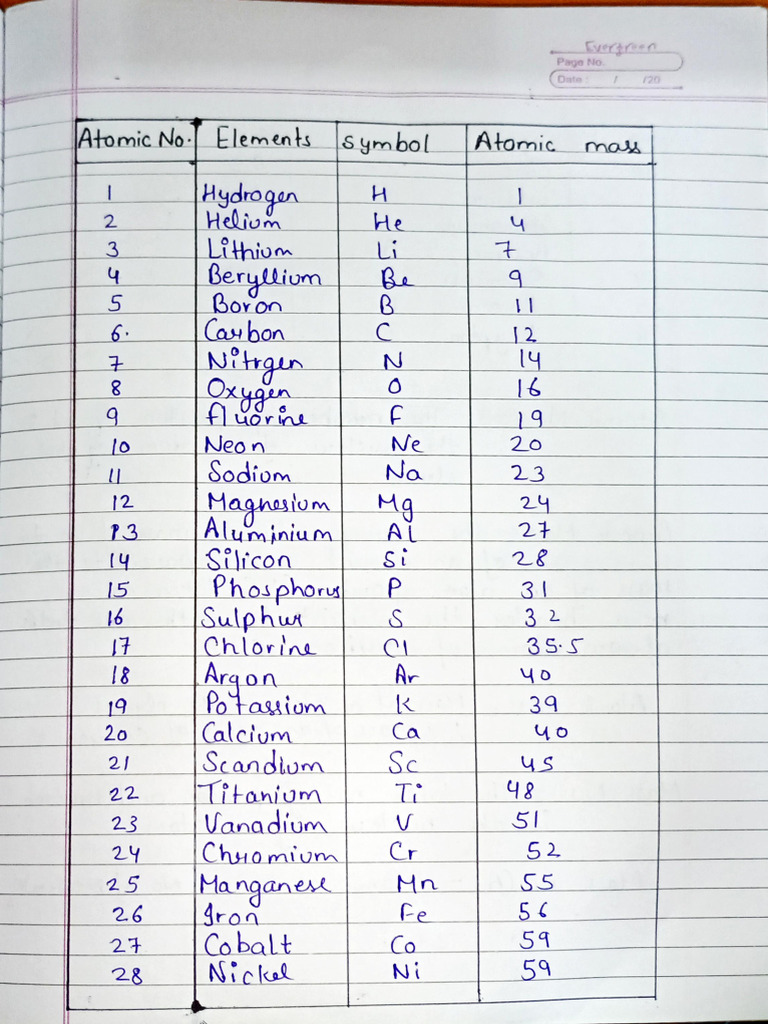 Evergreen
Page No.
Date : / /20
Atomic No. Elements Symbol Atomic mass
1 Hydrogen H 1
2 Helium He 4
3 Lithium Li 7
4 Beryllium Be 9
5 Boron B 11
6. Carbon C 12
7 Nitrgen N 14
8 Oxygen O 16
9 fluorine F 19
10 Neon Ne 20
11 Sodium Na 23
12 Magnesium Mg 24
13 Aluminium Al 27
14 Silicon Si 28
15 Phosphorus P 31
16 Sulphur S 32
17 Chlorine Cl 35.5
18 Argon Ar 40
19 Potassium K 39
20 Calcium Ca 40
21 Scandium Sc 45
22 Titanium Ti 48
23 Vanadium V 51
24 Chromium Cr 52
25 Manganese Mn 55
26 Iron Fe 56
27 Cobalt Co 59
28 Nickel Ni 59